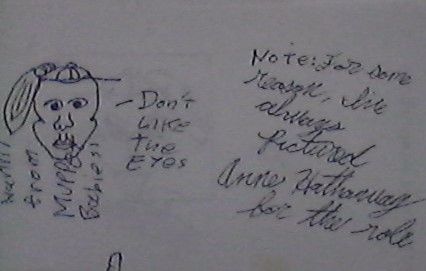 from
Muppet
Babies!
- Don't
Like
the
Eyes
Note: For some
reason, I've
always
pictured
Anne Hathaway
for the role